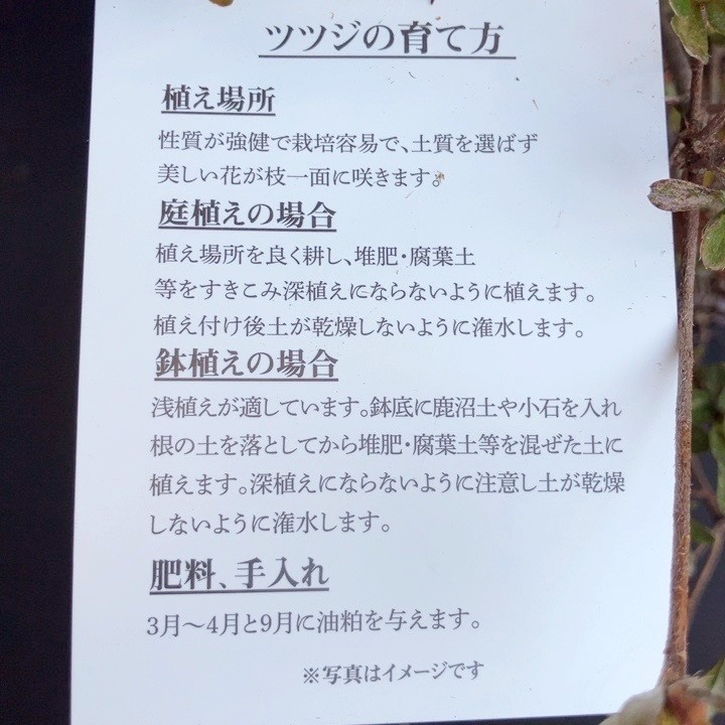 ツツジの育て方
植え場所
性質が強健で栽培容易で、土質を選ばず
美しい花が枝一面に咲きます。
庭植えの場合
植え場所を良く耕し、堆肥・腐葉土
等をすきこみ深植えにならないように植えます。
植え付け後土が乾燥しないように潅水します。
鉢植えの場合
浅植えが適しています。鉢底に鹿沼土や小石を入れ
根の土を落としてから堆肥・腐葉土等を混ぜた土に
植えます。深植えにならないように注意し土が乾燥
しないように潅水します。
肥料、手入れ
3月〜4月と9月に油粕を与えます。
※写真はイメージです